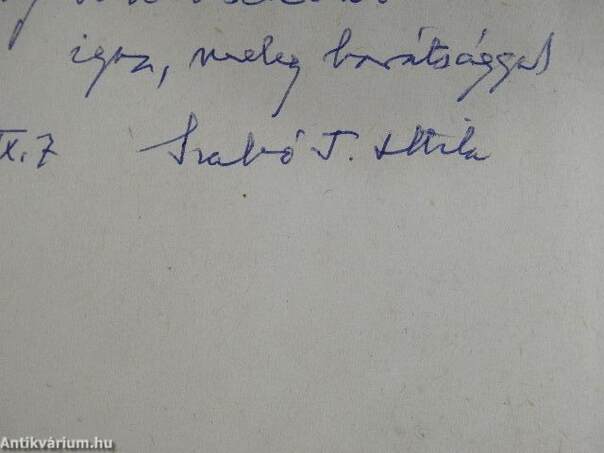 igaz, meleg barátsággal
IX. 7 Szabó T. Attila
Antikvárium.hu